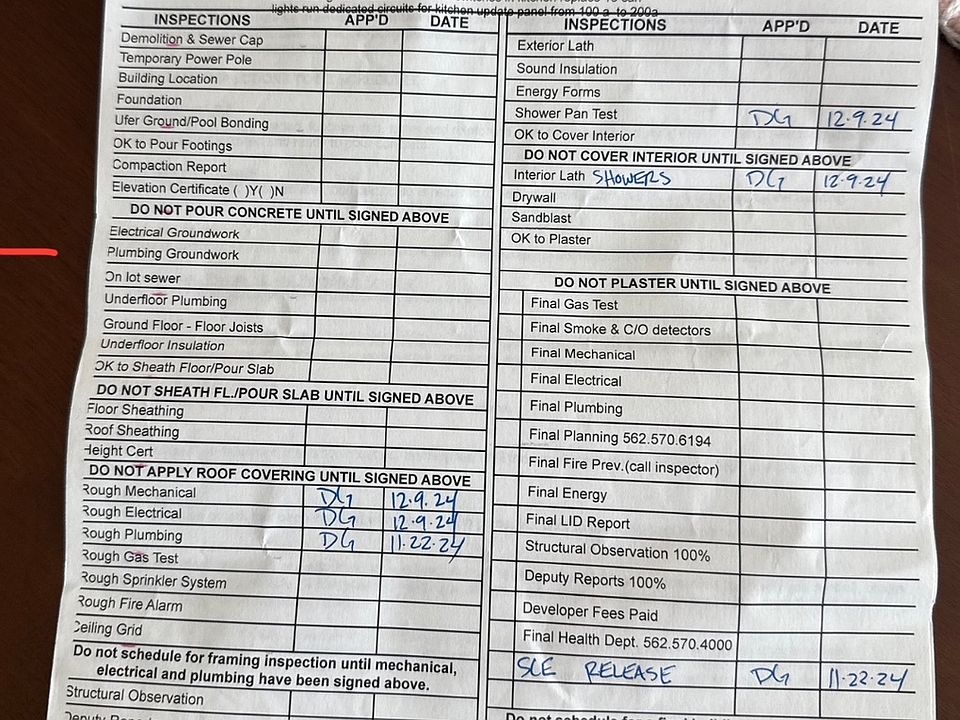 lights run dedicated circuits for kitchen update panel from 100 a. to 200a
INSPECTIONS APP'D DATE
Demolition & Sewer Cap
Temporary Power Pole
Building Location
Foundation
Ufer Ground/Pool Bonding
OK to Pour Footings
Compaction Report
Elevation Certificate ( )Y( )N
DO NOT POUR CONCRETE UNTIL SIGNED ABOVE
Electrical Groundwork
Plumbing Groundwork
On lot sewer
Underfloor Plumbing
Ground Floor - Floor Joists
Underfloor Insulation
OK to Sheath Floor/Pour Slab
DO NOT SHEATH FL./POUR SLAB UNTIL SIGNED ABOVE
Floor Sheathing
Roof Sheathing
Height Cert
DO NOT APPLY ROOF COVERING UNTIL SIGNED ABOVE
Rough Mechanical DG 12.9.24
Rough Electrical DG 12.9.24
Rough Plumbing DG 11.22.24
Rough Gas Test
Rough Sprinkler System
Rough Fire Alarm
Ceiling Grid
Do not schedule for framing inspection until mechanical,
electrical and plumbing have been signed above.
Structural Observation
INSPECTIONS APP'D DATE
Exterior Lath
Sound Insulation
Energy Forms
Shower Pan Test DG 12.9.24
OK to Cover Interior
DO NOT COVER INTERIOR UNTIL SIGNED ABOVE
Interior Lath SHOWERS DG 12.9.24
Drywall
Sandblast
OK to Plaster
DO NOT PLASTER UNTIL SIGNED ABOVE
Final Gas Test
Final Smoke & C/O detectors
Final Mechanical
Final Electrical
Final Plumbing
Final Planning 562.570.6194
Final Fire Prev.(call inspector)
Final Energy
Final LID Report
Structural Observation 100%
Deputy Reports 100%
Developer Fees Paid
Final Health Dept. 562.570.4000
SCE RELEASE DG 11.22.24